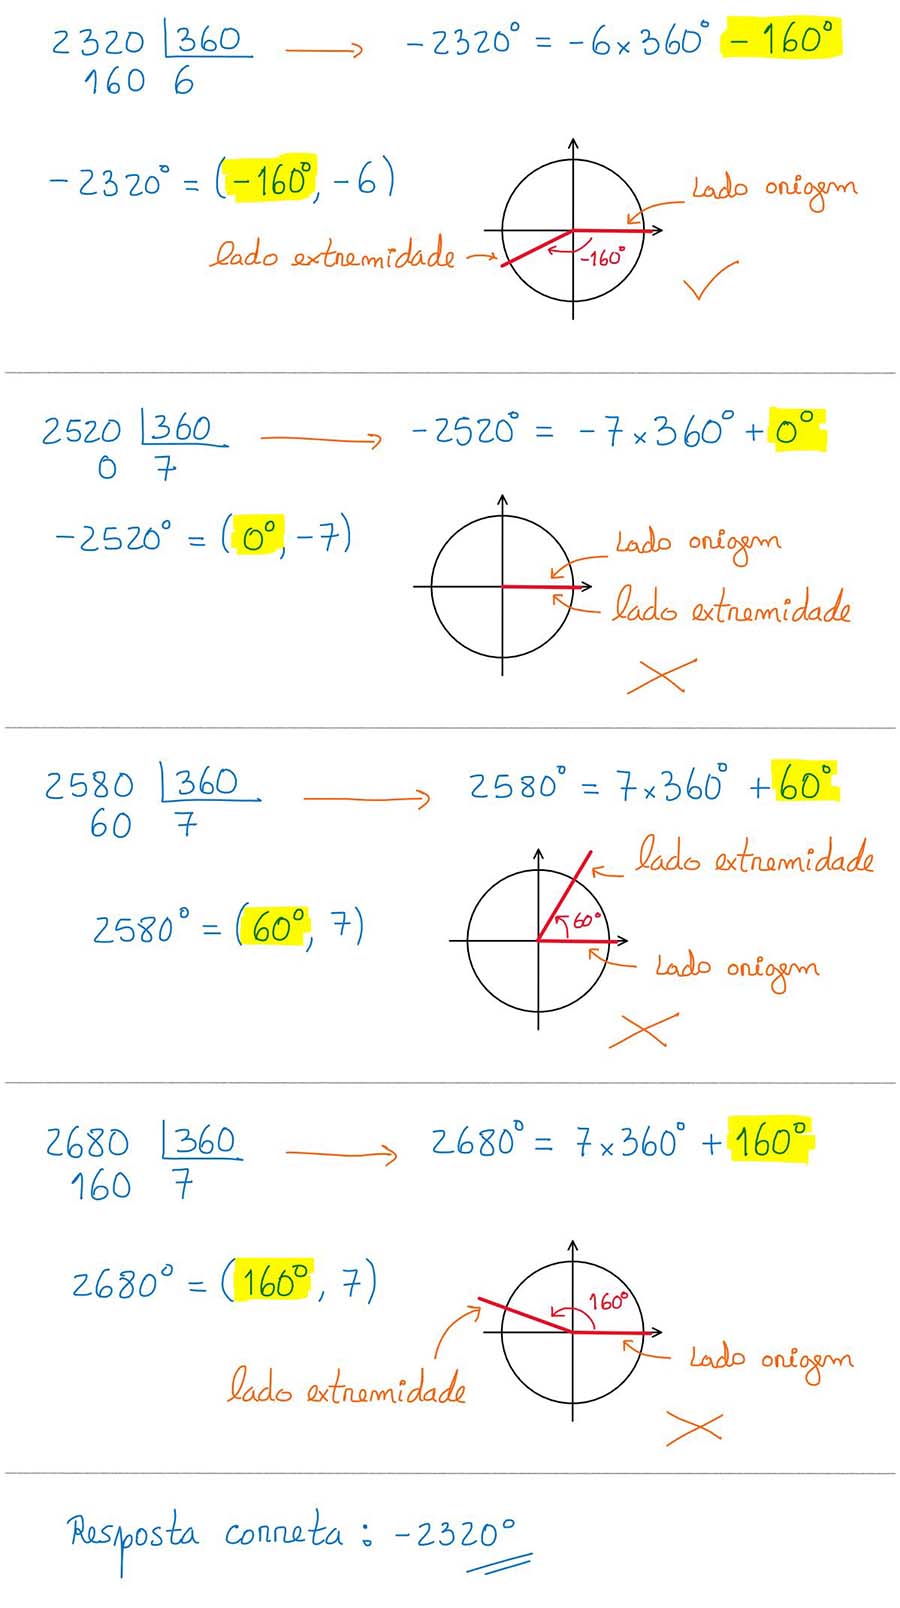 2320 |360 → -2320° = -6×360° -160°
160 6
-2320° = (-160°, -6)
Lado origem
lado extremidade
-160°
2520 |360 → -2520° = -7×360° + 0°
0 7
-2520° = (0°, -7)
Lado origem
lado extremidade
2580 |360 → 2580° = 7×360° + 60°
60 7
lado extremidade
2580° = (60°, 7)
60°
Lado origem
2680 |360 → 2680° = 7×360° + 160°
160 7
2680° = (160°, 7)
160°
Lado origem
lado extremidade
Resposta correta : -2320°